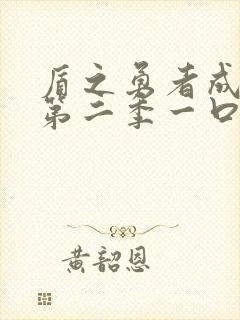 盾之勇者成
第二季一口
黄韶恩